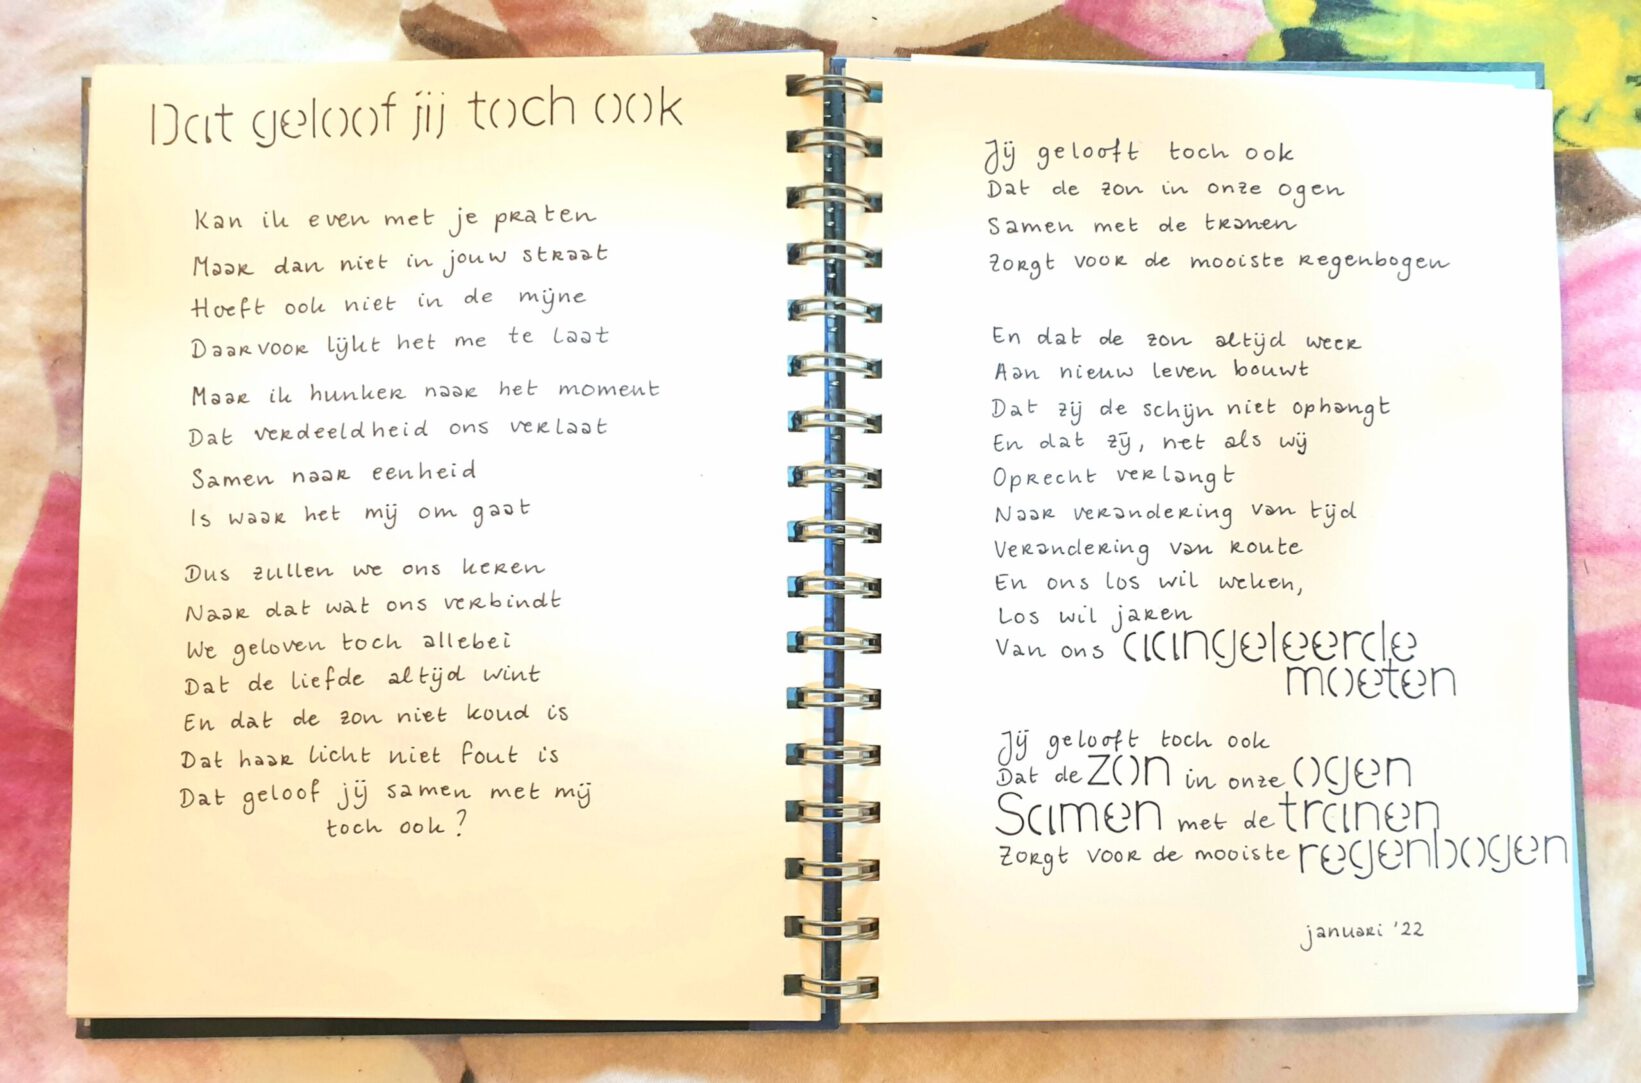 Dat geloof jij toch ook
Kan ik even met je praten
Maar dan niet in jouw straat
Hoeft ook niet in de mijne
Daarvoor lijkt het me te laat
Maar ik hunker naar het moment
Dat verdeeldheid ons verlaat
Samen naar eenheid
Is waar het mij om gaat
Dus zullen we ons keren
Naar dat wat ons verbindt
We geloven toch allebei
Dat de liefde altijd wint
En dat de zon niet koud is
Dat haar licht niet fout is
Dat geloof jij samen met mij
toch ook?
Jij gelooft toch ook
Dat de zon in onze ogen
Samen met de tranen
Zorgt voor de mooiste regenbogen
En dat de zon altijd weer
Aan nieuw leven bouwt
Dat zij de schijn niet ophangt
En dat zij, net als wij
Oprecht verlangt
Naar verandering van tijd
Verandering van route
En ons los wil weken,
Los wil jaren
Van ons aangeleerde
moeten
Jij gelooft toch ook
Dat de zon in onze ogen
Samen met de tranen
Zorgt voor de mooiste regenbogen
januari '22